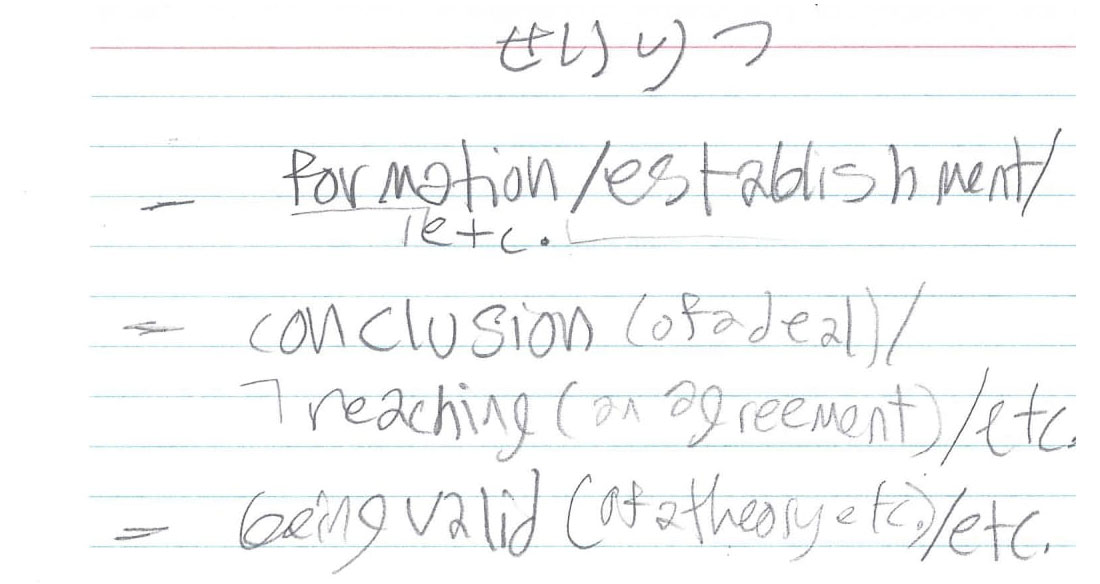 せいりつ
- formation/establishment/
/etc.
= conclusion (of a deal)/
reaching (an agreement)/etc.
= being valid (of a theory etc.)/etc.